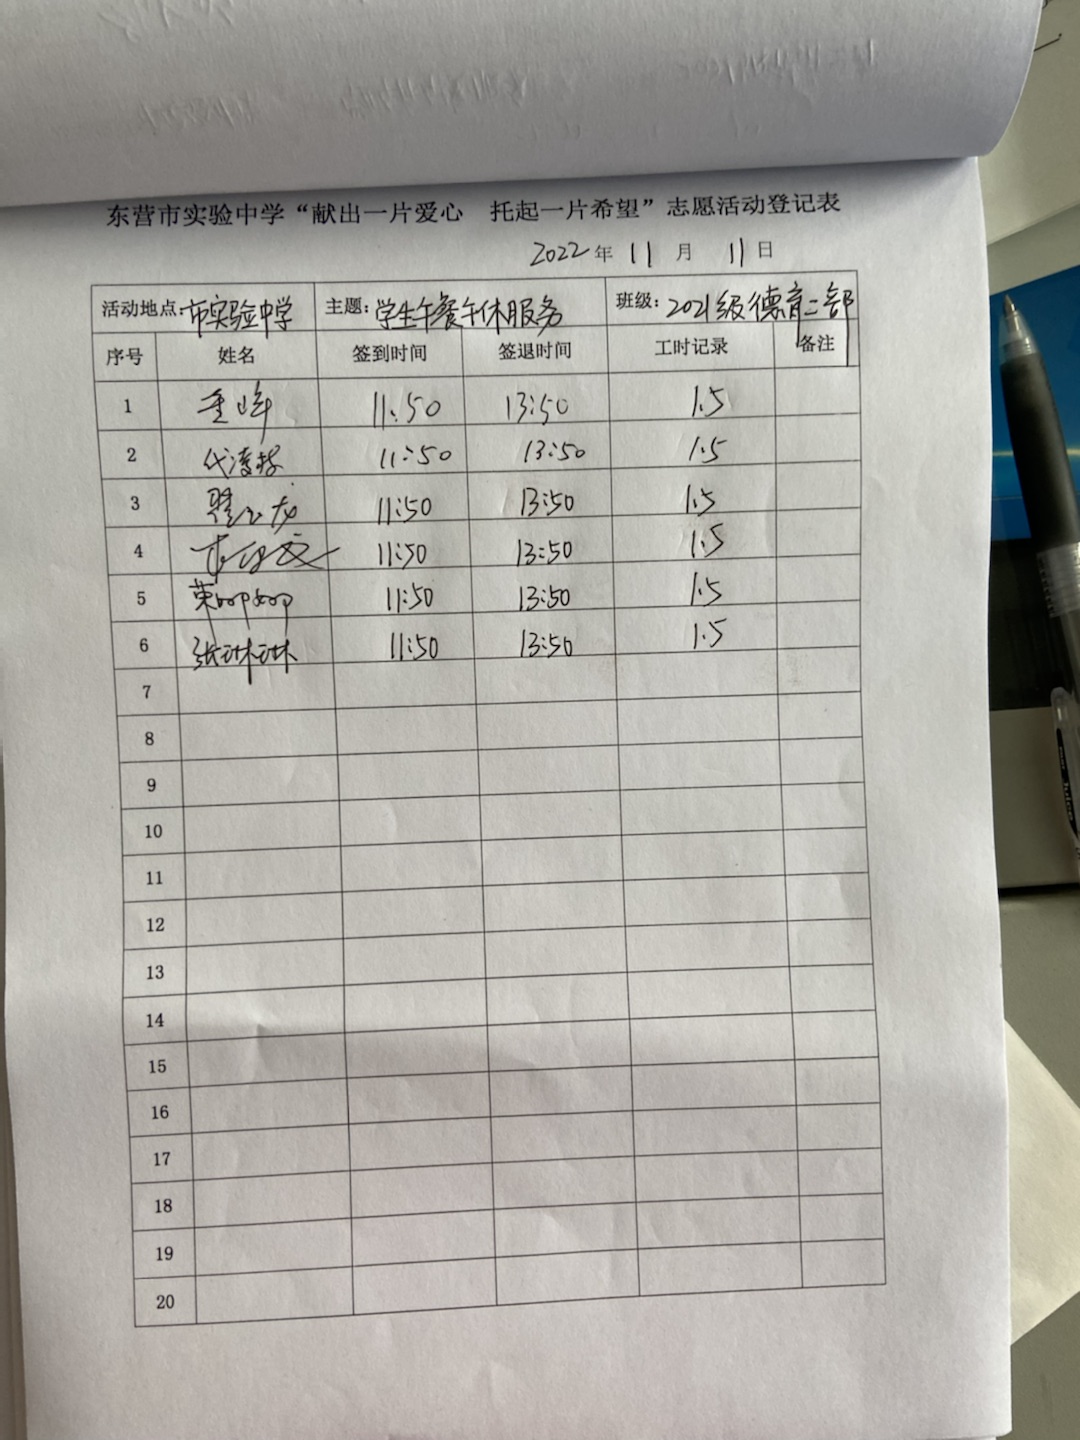 东营市实验中学“献出一片爱心 托起一片希望”志愿活动登记表
2022年 11 月 11日
活动地点:市实验中学 主题:学生午餐午休服务 班级:2021级德育二部
序号 姓名 签到时间 签退时间 工时记录 备注
1 11:50 13:50 1.5
2 11:50 13:50 1.5
3 11:50 13:50 1.5
4 11:50 13:50 1.5
5 11:50 13:50 1.5
6 张琳琳 11:50 13:50 1.5
7
8
9
10
11
12
13
14
15
16
17
18
19
20